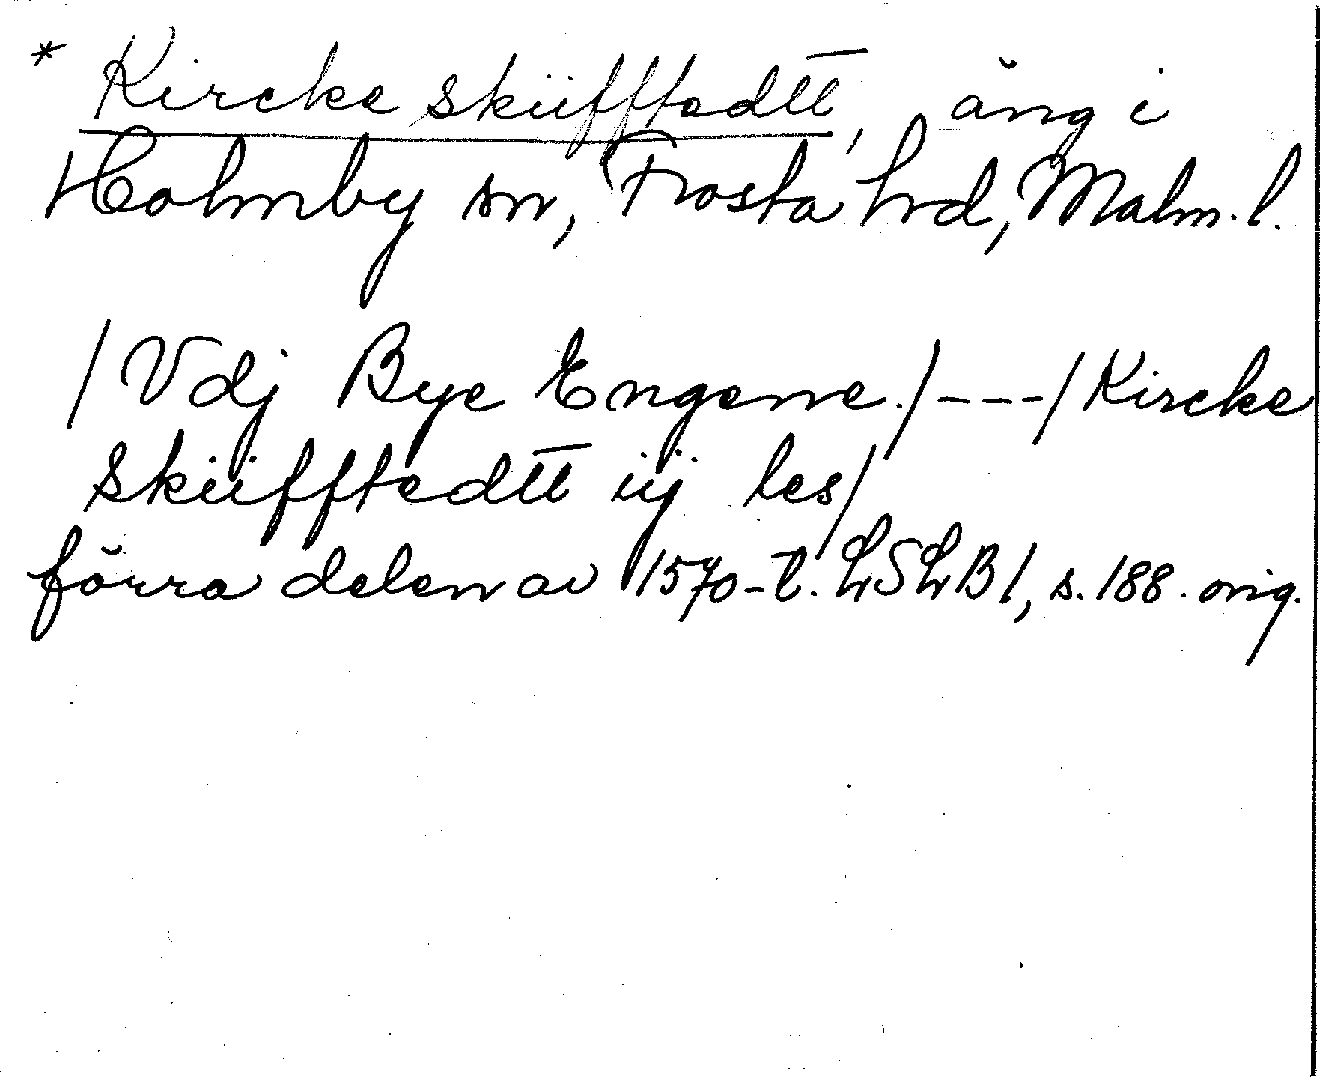 * Kircke sküfftedtt, äng i
Holmby sn, Frosta hrd, Malm. l.
/Vdj Bye Engene./---/Kircke
sküfftedtt iij les/
förra delen av 1570-t. LSLB1, s. 188. orig.